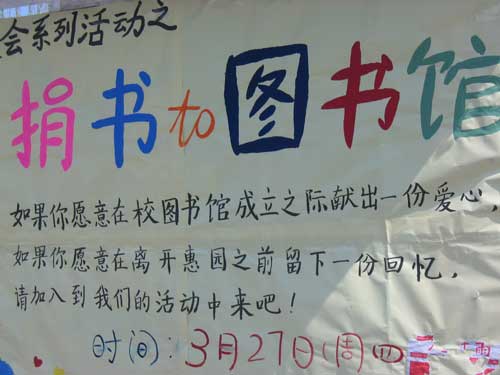 会系列活动之
捐书to图书馆
如果你愿意在校图书馆成立之际献出一份爱心,
如果你愿意在离开惠园之前留下一份回忆,
请加入到我们的活动中来吧!
时间:3月27日(周四